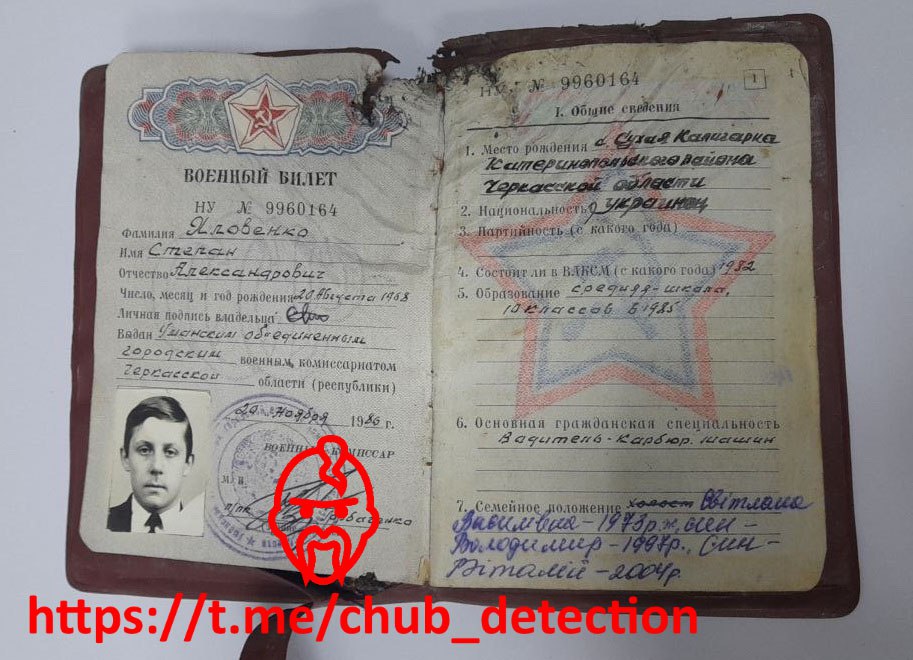 ВОЕННЫЙ БИЛЕТ
НУ № 9960164
Фамилия Яловенко
Имя Степан
Отчество Александрович
Число, месяц и год рождения 20 Августа 1968
Личная подпись владельца
Выдан Уманским объединенным
городским военным комиссариатом
Черкасской области (республики)
20 Ноября 1986 г.
ВОЕННЫЙ КОМИССАР
М.П.
п/пк Горбаченко
НУ № 9960164
1
I. Общие сведения
1. Место рождения с. Сухая Калигарка
Катеринопольского района
Черкасской области
2. Национальность украинец
3. Партийность (с какого года)
4. Состоит ли в ВЛКСМ (с какого года) 1982
5. Образование средняя-школа,
10 классов в 1985
6. Основная гражданская специальность
Вадитель-карбюр. машин
7. Семейное положение холост Світлана
1973р.н, син -
Володимир - 1997р., син -
Віталій - 2004р.
https://t.me/chub_detection